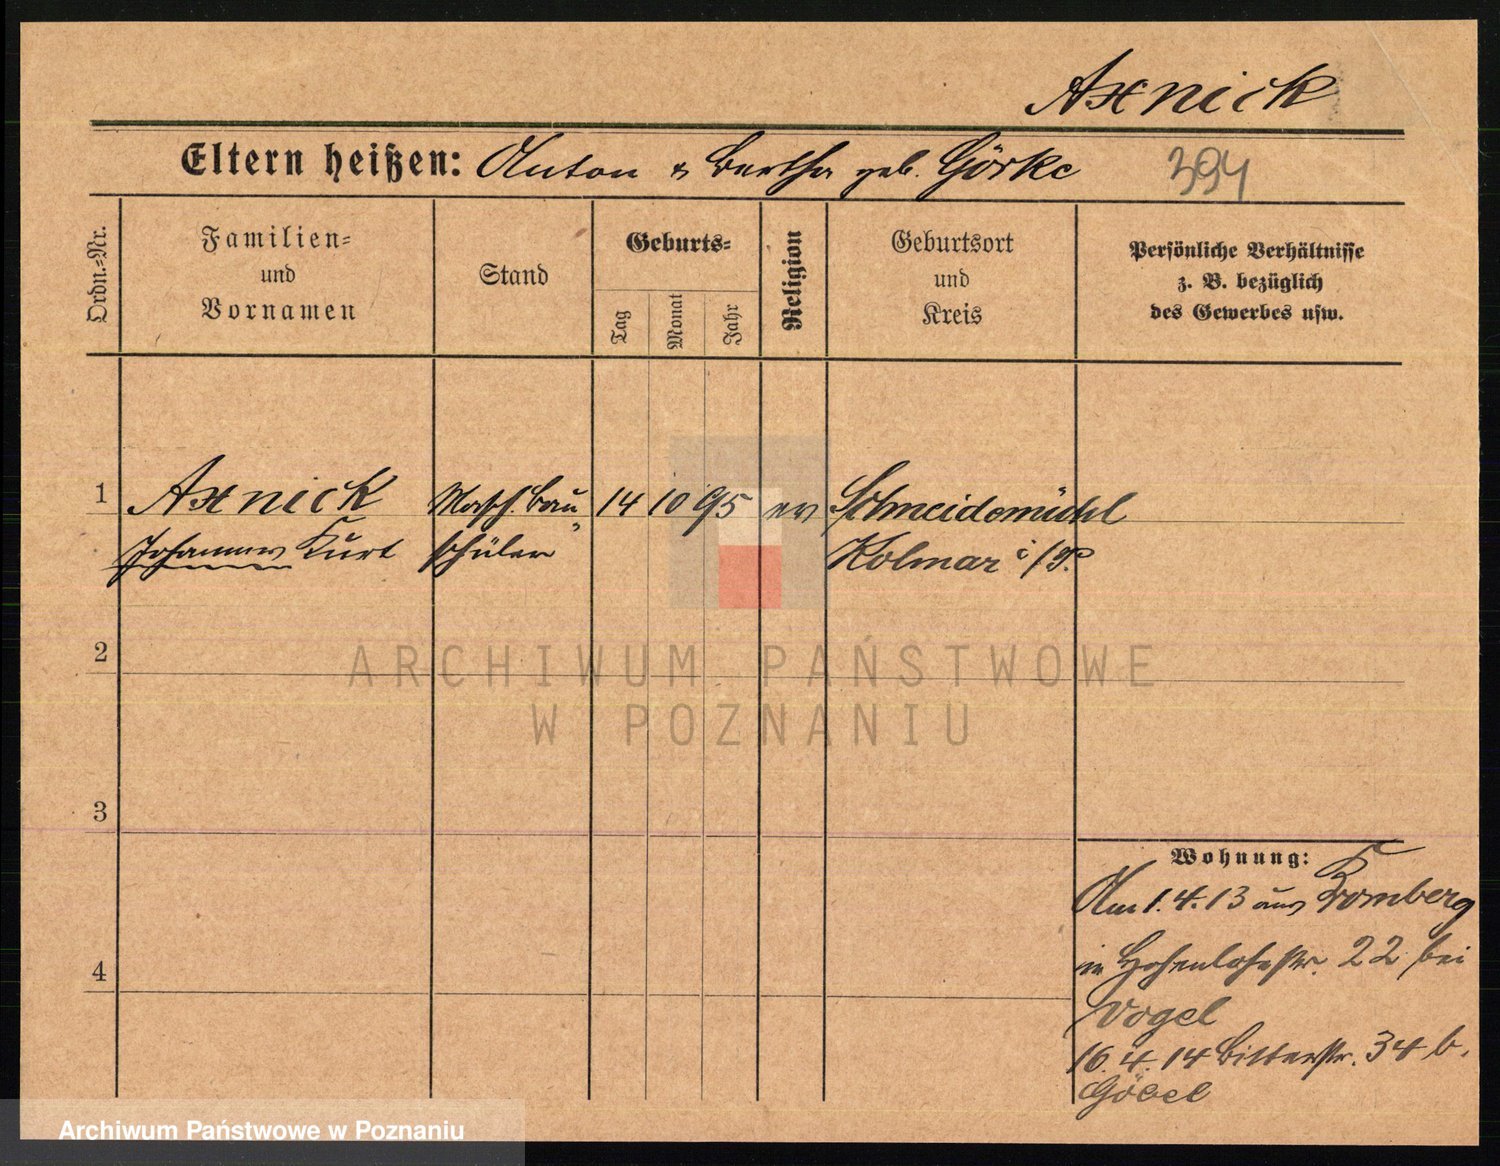 Axnick
Eltern heißen: Anton & Bertha geb. Görke 394
Ordn.-Nr.
Familien- und Vornamen
Stand
Geburts-
Tag Monat Jahr
Religion
Geburtsort und Kreis
Persönliche Verhältnisse
z. B. bezüglich
des Gewerbes usw.
1 Axnick Masch. Bau 14 10 95 ev Schneidemühl
Johannes Kurt schüler Kolmar i/P.
2
ARCHIWUM PAŃSTWOWE
W POZNANIU
3
Wohnung:
Am 1.4.13 aus Bromberg
in Hohenlohestr. 22 bei
4
Vogel
16.4.14 Bitterstr. 34 b.
Göbel
Archiwum Państwowe w Poznaniu